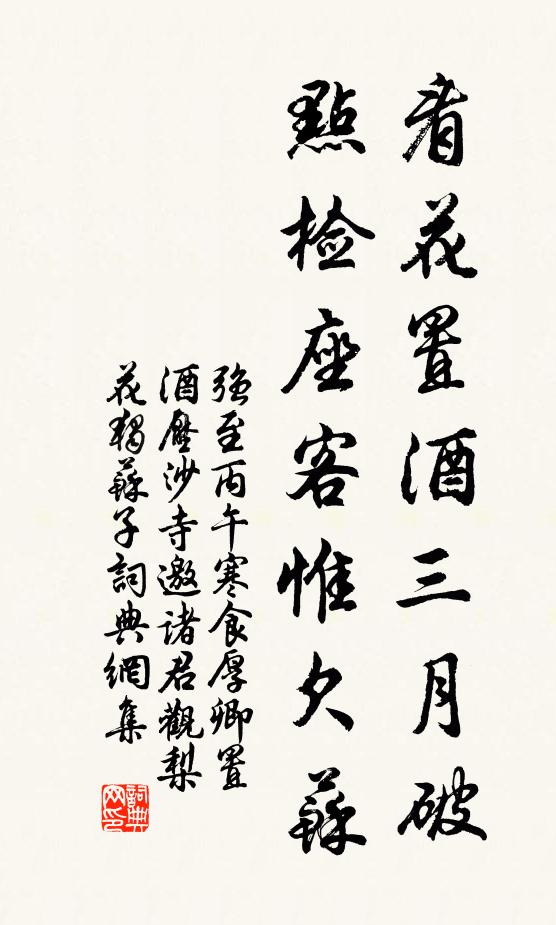 看花置酒三月破
點檢座客惟欠蘇
強至丙午寒食厚卿置
酒壓沙寺邀諸君觀梨
花獨蘇子詞典網集
詞典网印